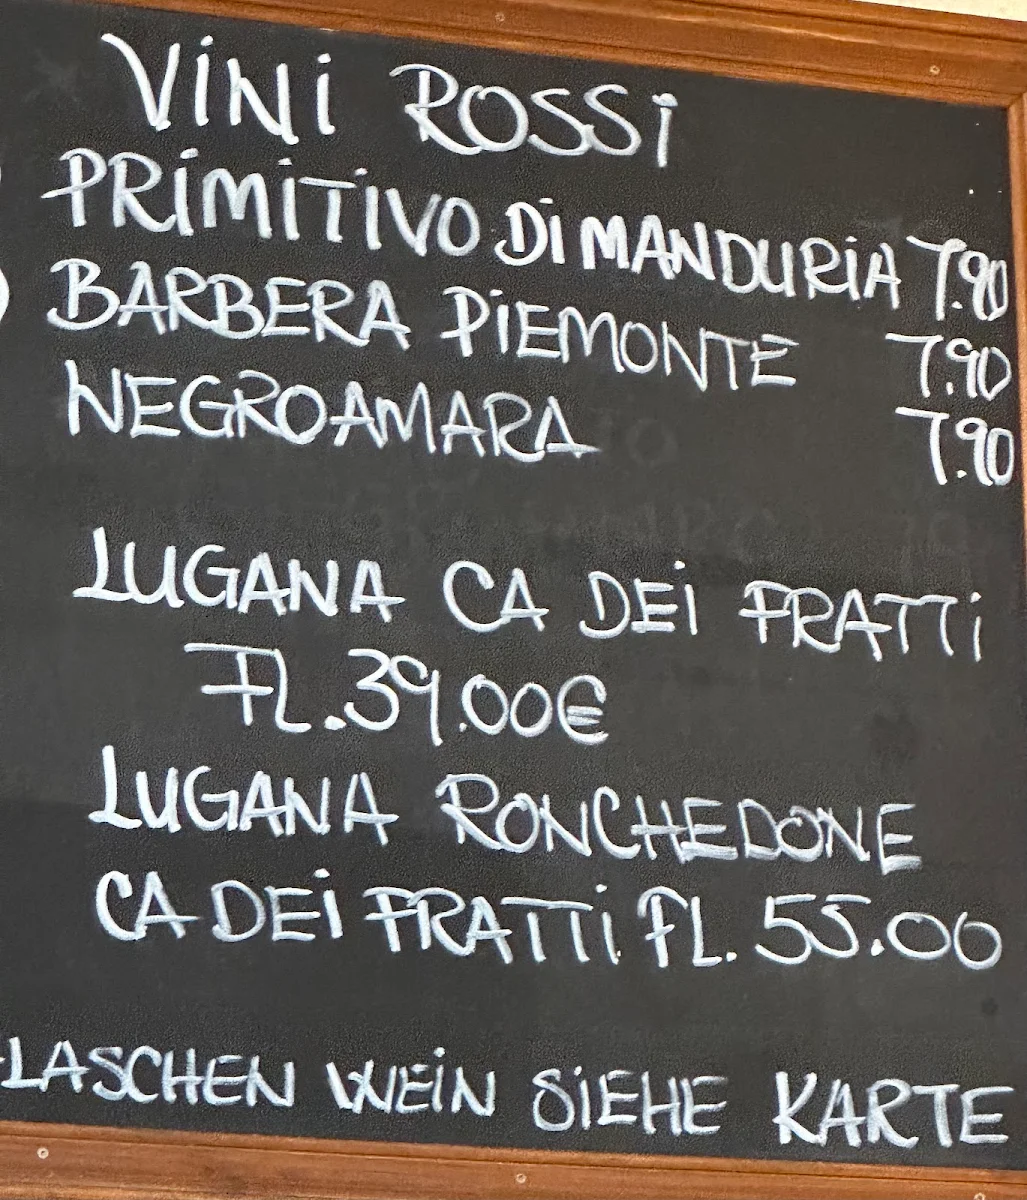 VINI ROSSI
PRIMITIVO DI MANDURIA 7.90
BARBERA PIEMONTE 7.90
NEGROAMARA 7.90
LUGANA CA DEI FRATTI
FL.39.00€
LUGANA RONCHEDONE
CA DEI FRATTI FL. 55.00
LASCHEN WEIN SIEHE KARTE